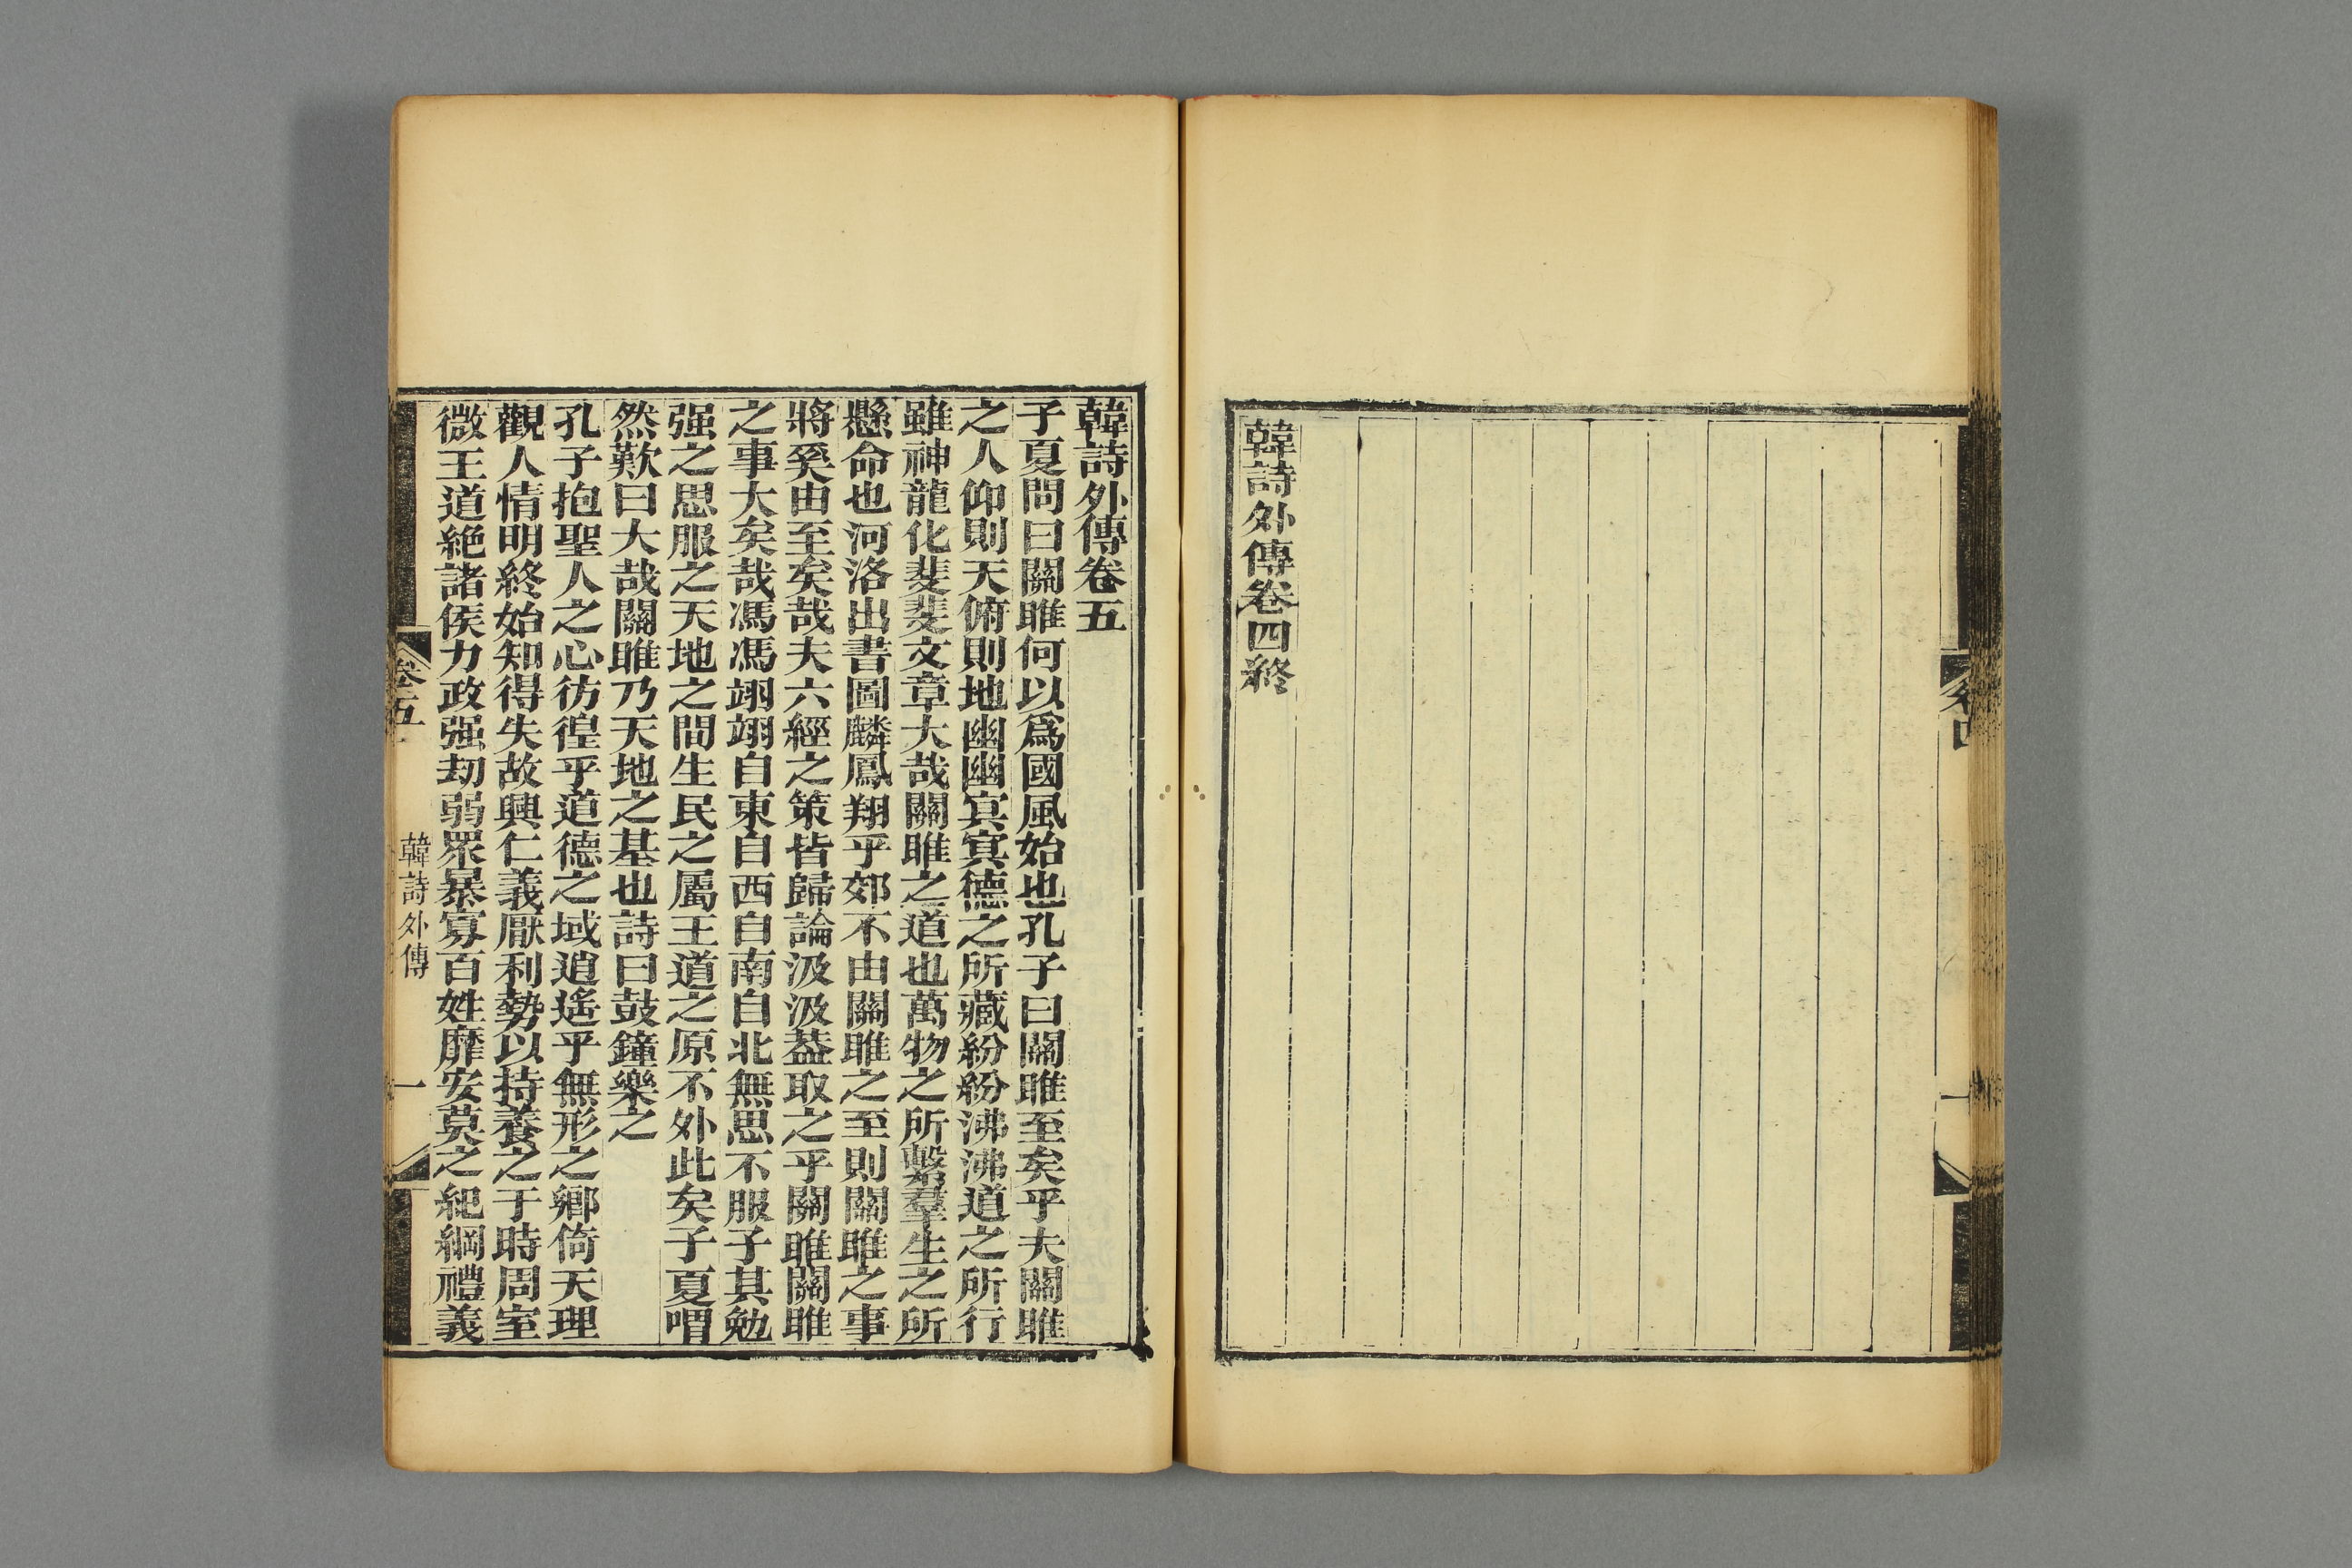 韓詩外傳卷四終
韓詩外傳卷五
子夏問曰關雎何以爲國風始也孔子曰關雎至矣乎夫關雎
之人仰則天俯則地幽幽冥冥德之所藏紛紛沸沸道之所行
雖神龍化斐斐文章大哉關雎之道也萬物之所繫羣生之所
懸命也河洛出書圖麟鳳翔乎郊不由關雎之道則關雎之事
將奚由至矣哉夫六經之策皆歸論汲汲葢取之乎關雎關雎
之事大矣哉馮馮翊翊自東自西自南自北無思不服子其勉
强之思服之天地之間生民之屬王道之原不外此矣子夏喟
然歎曰大哉關雎乃天地之基也詩曰鼓鐘樂之
孔子抱聖人之心彷徨乎道德之域逍遙乎無形之鄉倚天理
觀人情明終始知得失故興仁義厭利勢以持養之于時周室
微王道絶諸侯力政强劫弱眾暴寡百姓靡安莫之紀綱禮義
卷五
韓詩外傳
一